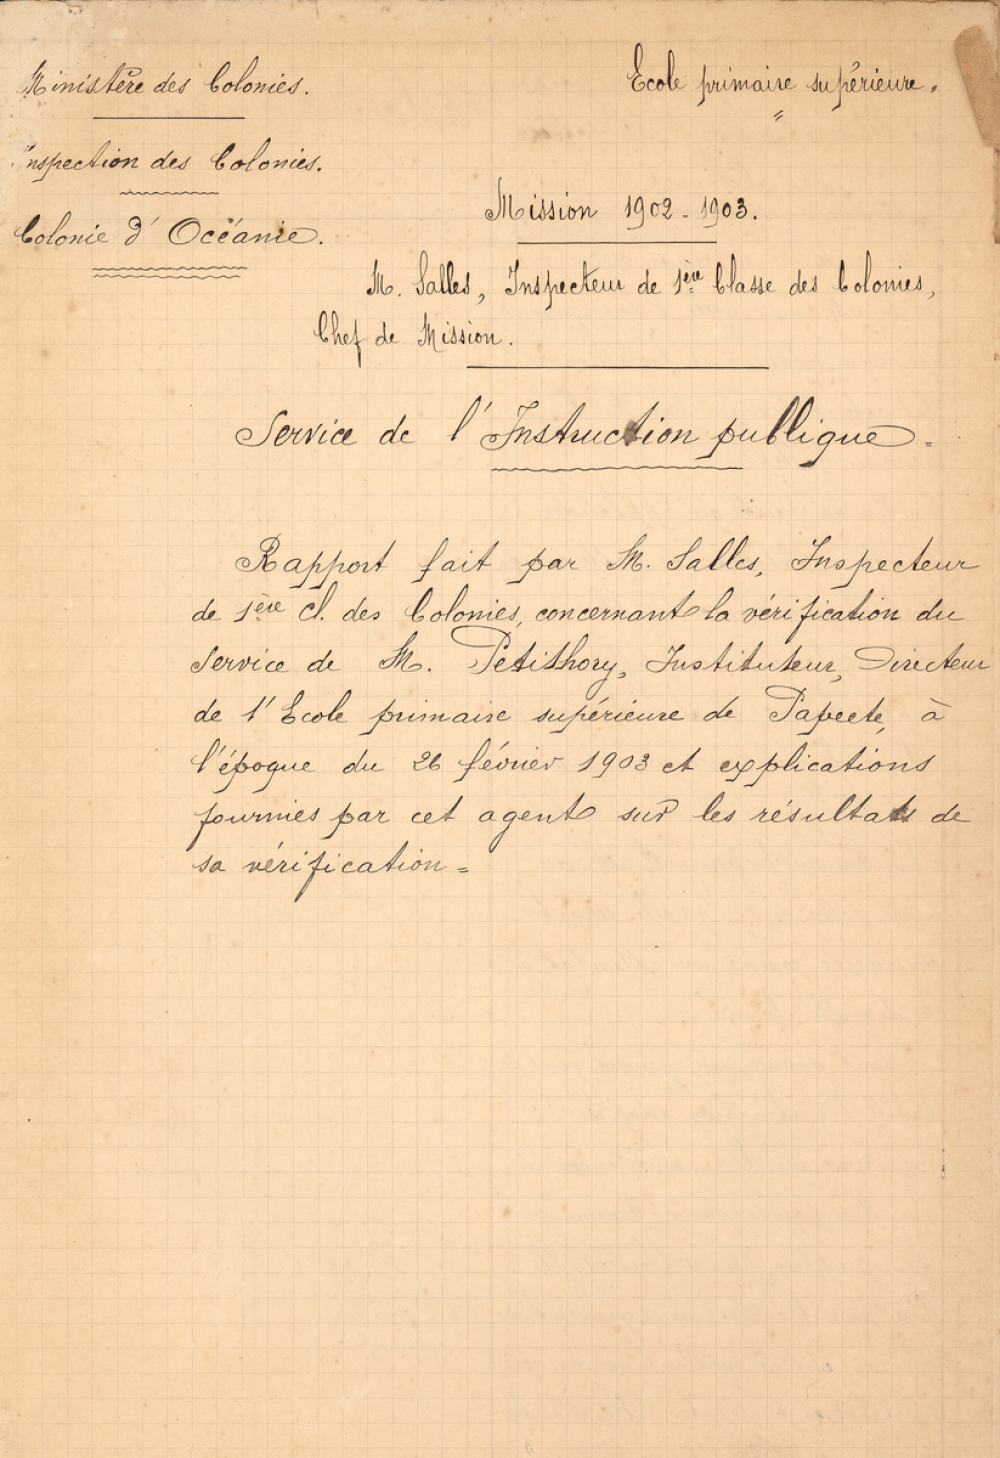 Ministère des Colonies.
Inspection des Colonies.
Colonie d'Océanie.
Ecole primaire supérieure.
Mission 1902-1903.
M. Salles, Inspecteur de 1ère Classe des Colonies,
Chef de Mission.
Service de l'Instruction publique.
Rapport fait par M. Salles, Inspecteur
de 1ère cl. des Colonies, concernant la vérification du
service de M. Petithory, Instituteur, Directeur
de l'Ecole primaire supérieure de Papeete, à
l'époque du 26 février 1903 et explications
fournies par cet agent sur les résultats de
sa vérification =